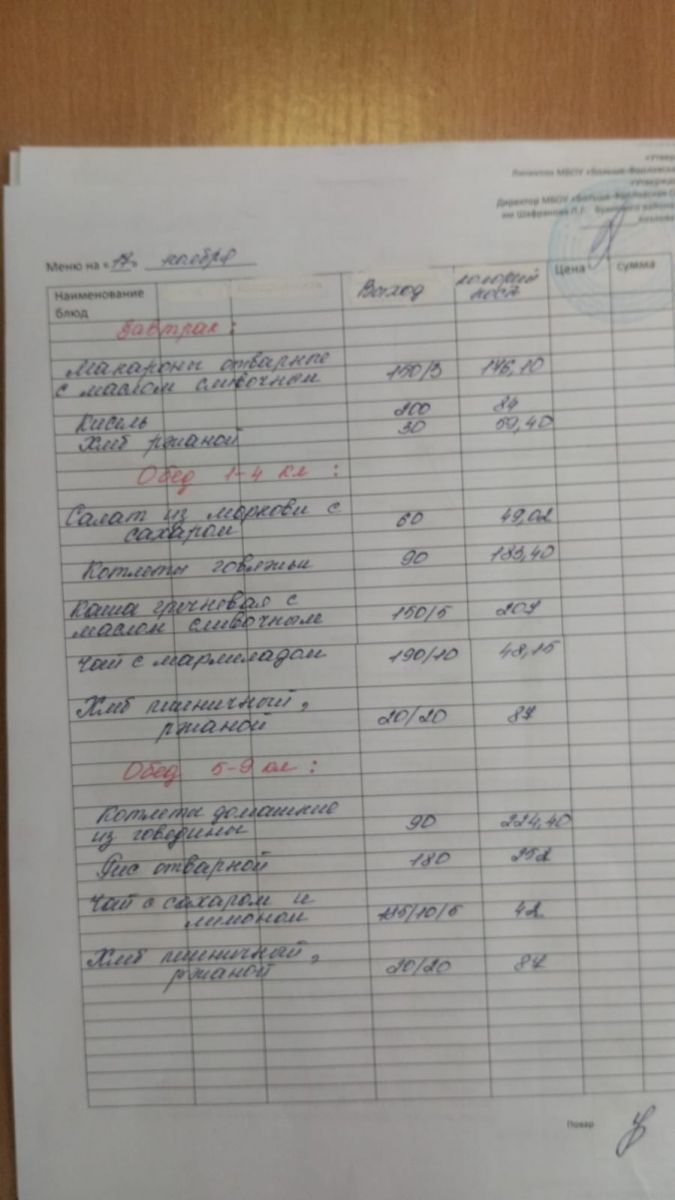 «Утвер
Директор МБОУ «Больше-Фроловская
Меню на «17» ноября
Наименование блюд Выход калорий ность Цена сумма
Завтрак:
Макароны отварные
с маслом сливочным 150/3 176,10
Кисель 200 84
Хлеб ржаной 30 59,40
Обед 1-4 кл :
Салат из моркови с
сахаром 60 49,02
Котлеты говяжьи 90 183,40
Каша гречневая с
маслом сливочным 150/5 207
Чай с мармеладом 190/10 48,15
Хлеб пшеничный,
ржаной 20/20 87
Обед 5-9 кл :
Котлеты домашние
из говедины 90 224,40
Рис отварной 180 252
Чай с сахаром и
лимоном 185/10/5 42
Хлеб пшеничный,
ржаной 20/20 87
Повар